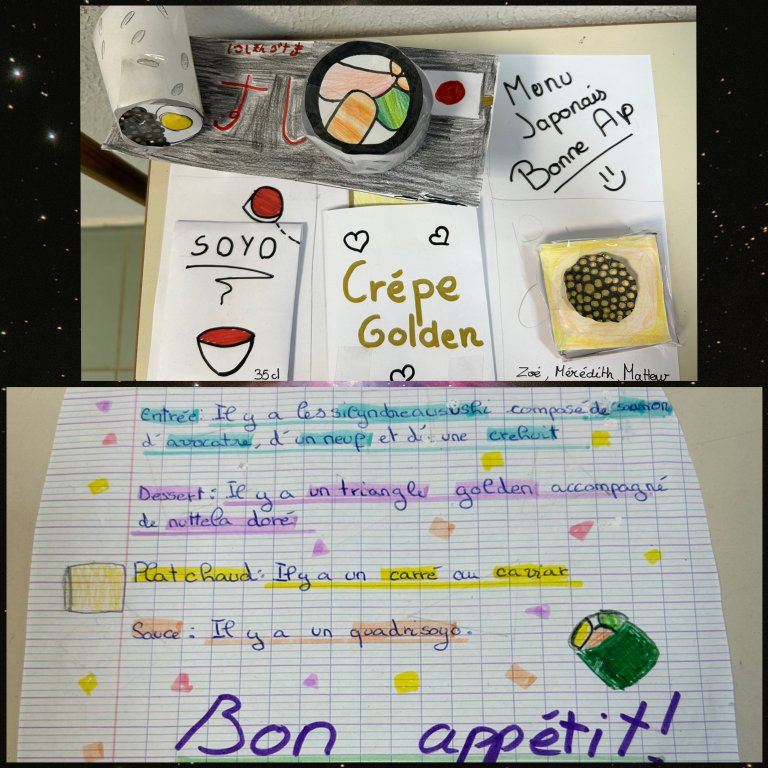 すし
Menu
Japonais
Bonne Ap
SOYO
35cl
Crépe
Golden
Zoé, Mérédith, Matteur
Entrée: Il y a les composé de saumon
d'avocatre, d'un neuf et d'une crehoit
Dessert: Il y a un triangle golden accompagné
de nuttela doré
Plat chaud: Il y a un carré au caviar
Sauce: Il y a un quadrisoyo.
Bon appétit!